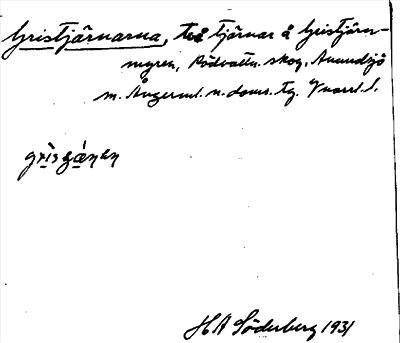 Gristjärnarna, två tjärnar å Gristjärn-
myren, Rödvattn. skog, Anundsjö
m. Ångerml. n. doms. tg. Vnorrl. l.
HA Söderberg 1931